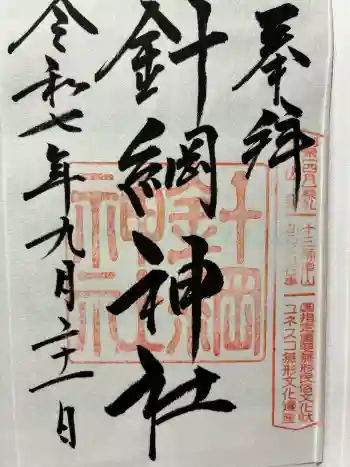 奉拝
針綱神社
令和七年九月二十一日
針綱
神社
国指定重要無形民俗文化財
ユネスコ無形文化遺産